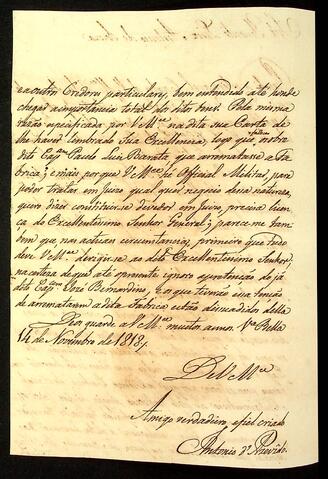 a a outros Credores particulares, bem entendido até honde
chega a importancia total dos ditos bens. Pela mesma
razão especificada por V Mce na dita sua Carta de
lhe haver lembrado Sua Excellencia, logo que soube
dito Capam Paulo Luis Barata, que arrematase a Fa-
brica; e mais por que V Mce he Official Militar, para
poder tratar em juizo qual quer negocio de natureza,
quero dizer constituir-se devedor em juizo, precisa licen-
ca do Excellentissimo Senhor General; parece-me tam-
bem que, nas actuaes circunstancias, primeiro que tudo
deve V Mce dirigir-se ao dito Excellentissimo Senhor,
na certeza de que até o prezente ignoro a pertenção do já
dito Capam José Bernardino, e os que tinhão sua tenção
de arrematarem a dita Fabrica estão dissuadidos della
Deos guarde a V Mce muitos annos. Va Bella
14 de Novembro de 1818
De V Mce
Amigo verdadeiro, e fiel criado
Antonio